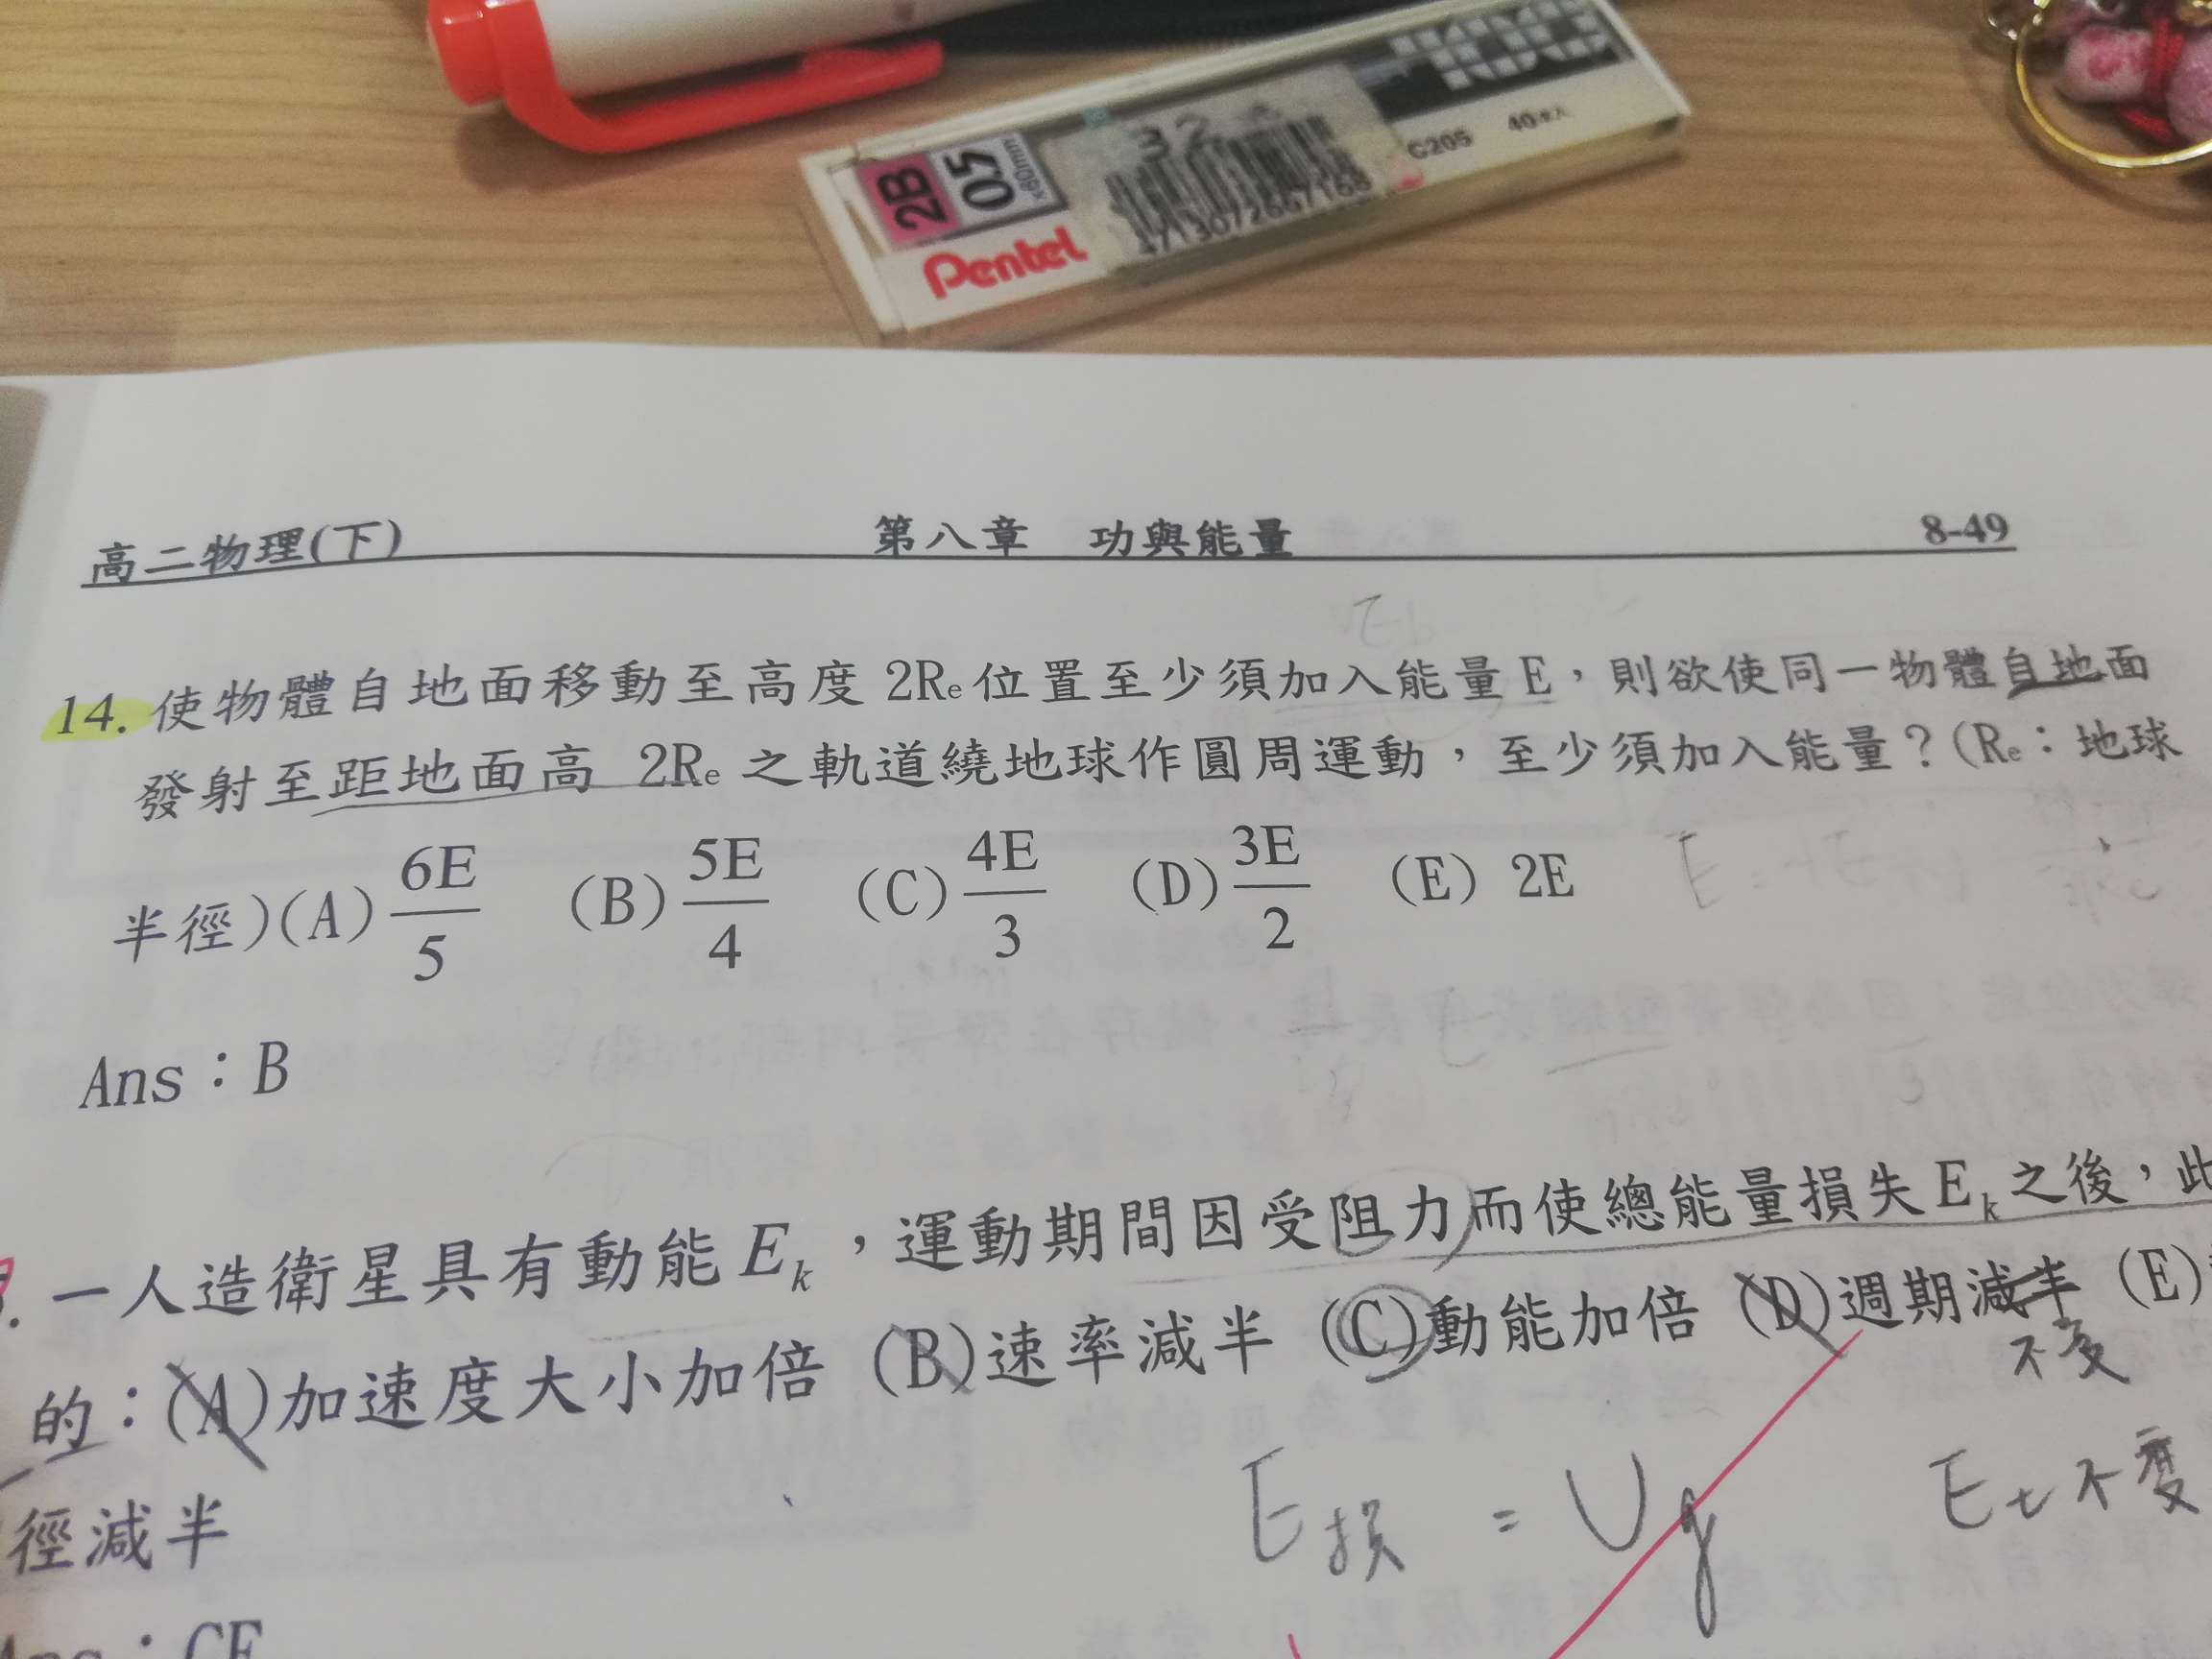 32
2B
0.5
x60mm
Pentel
C205
高二物理(下) 第八章 功與能量 8-49
14. 使物體自地面移動至高度 2Re位置至少須加入能量E，則欲使同一物體自地面
發射至距地面高 2Re 之軌道繞地球作圓周運動，至少須加入能量？(Re：地球
半徑)(A) 6E/5 (B) 5E/4 (C) 4E/3 (D) 3E/2 (E) 2E
Ans：B
一人造衛星具有動能Ek，運動期間因受阻力而使總能量損失Ek之後，此
的：(A)加速度大小加倍 (B)速率減半 (C)動能加倍 (D)週期減半 (E)
不變
徑減半
E損 = Ug
Et不變
Ans：CE